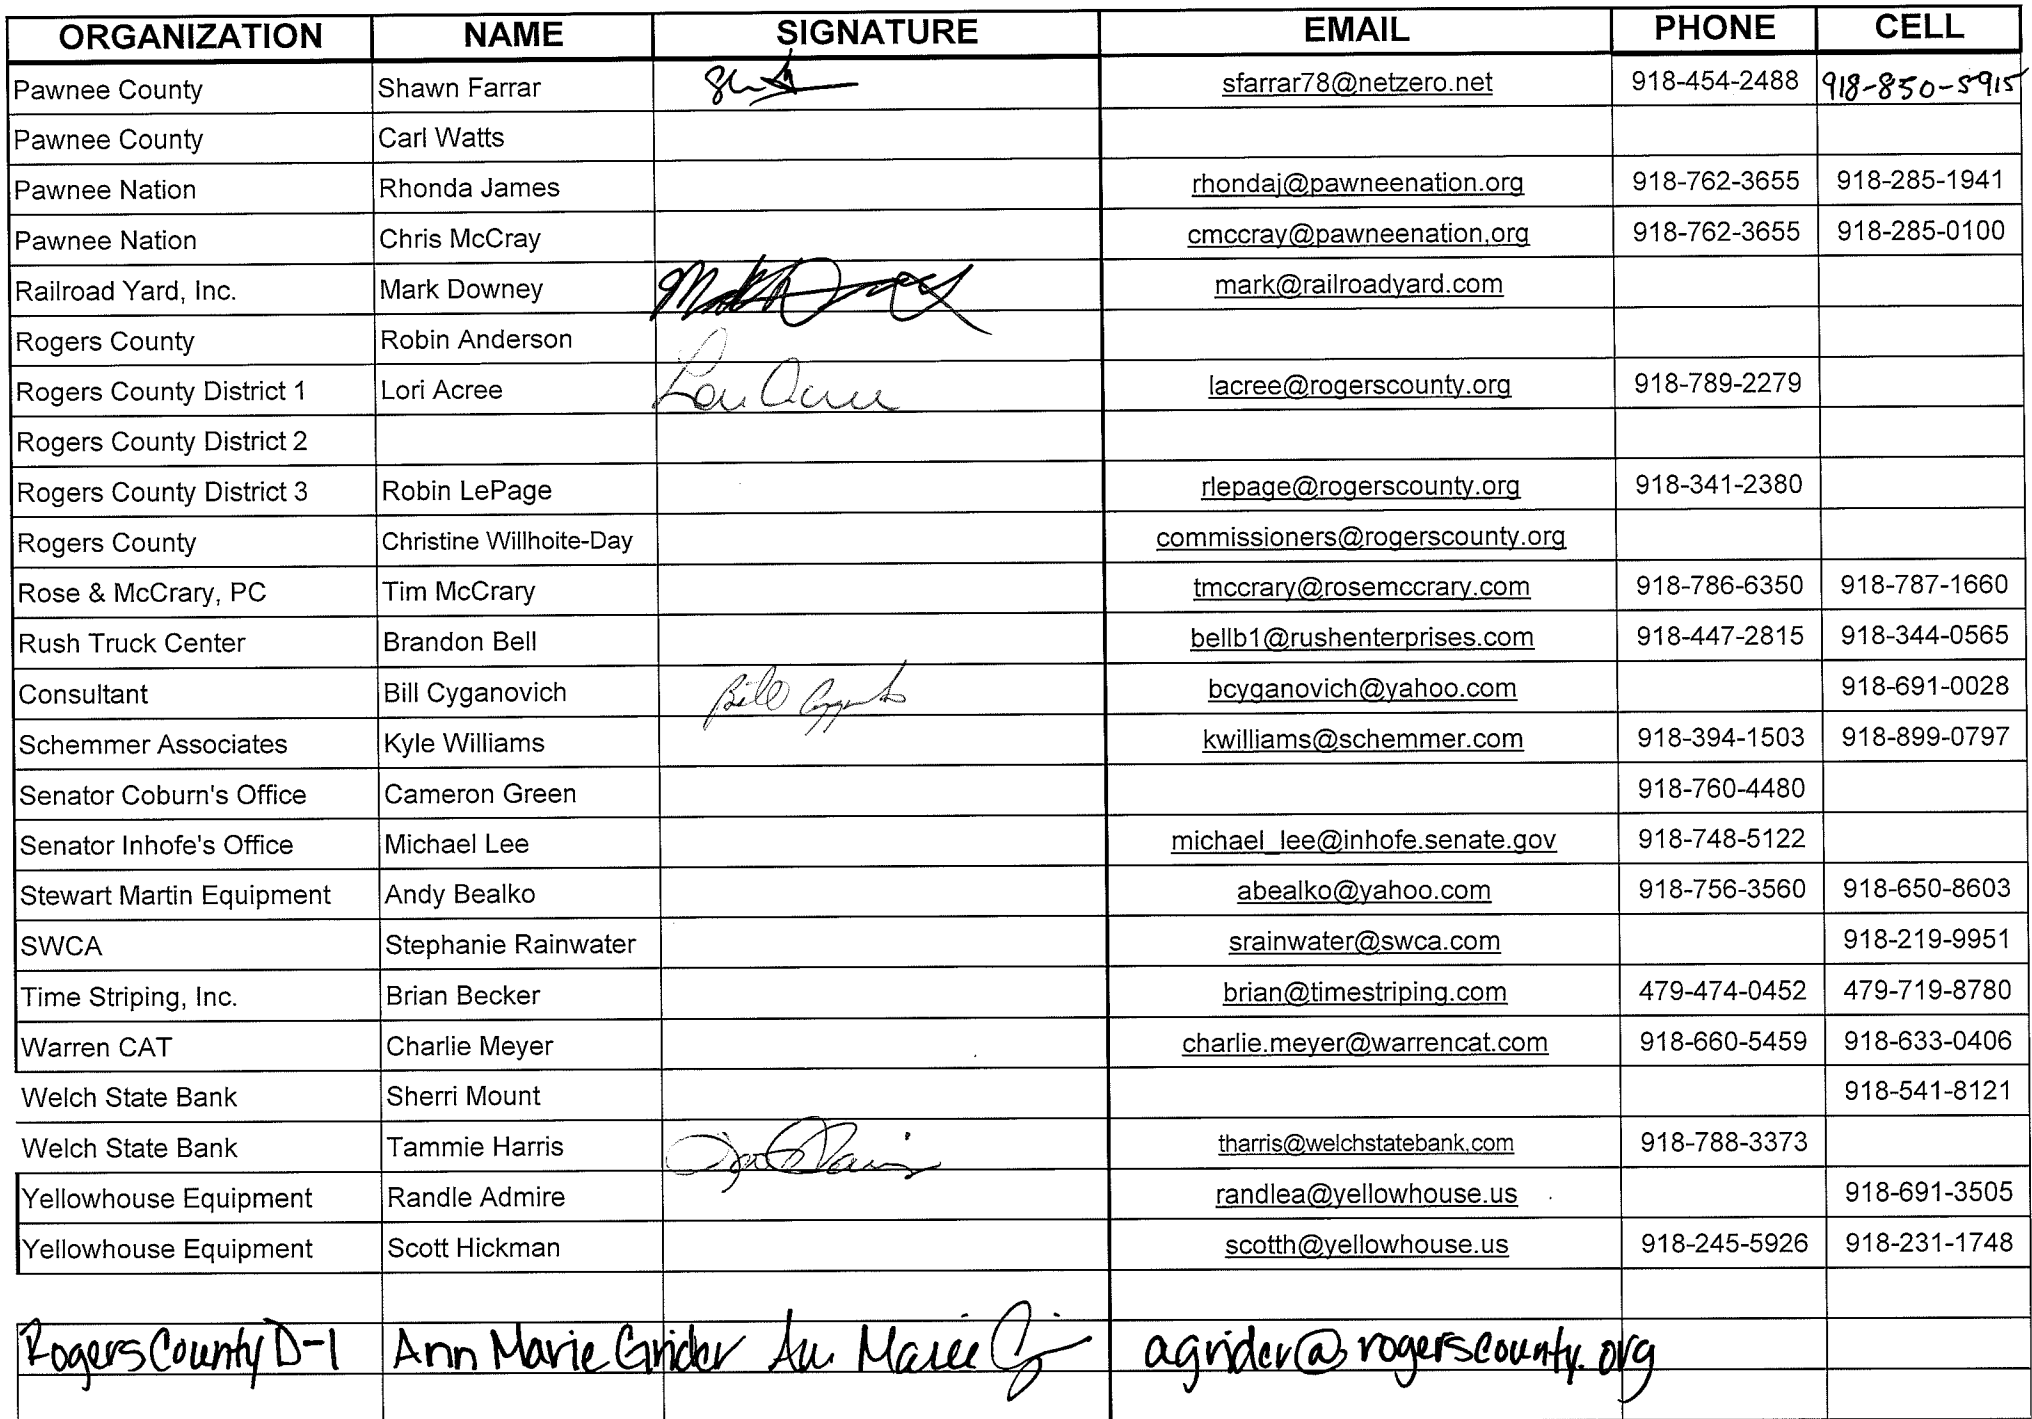 ORGANIZATION NAME SIGNATURE EMAIL PHONE CELL
Pawnee County Shawn Farrar sfarrar78@netzero.net 918-454-2488 918-850-5915
Pawnee County Carl Watts
Pawnee Nation Rhonda James rhondaj@pawneenation.org 918-762-3655 918-285-1941
Pawnee Nation Chris McCray cmccray@pawneenation,org 918-762-3655 918-285-0100
Railroad Yard, Inc. Mark Downey mark@railroadyard.com
Rogers County Robin Anderson
Rogers County District 1 Lori Acree Lori Acree lacree@rogerscounty.org 918-789-2279
Rogers County District 2
Rogers County District 3 Robin LePage rlepage@rogerscounty.org 918-341-2380
Rogers County Christine Willhoite-Day commissioners@rogerscounty.org
Rose & McCrary, PC Tim McCrary tmccrary@rosemccrary.com 918-786-6350 918-787-1660
Rush Truck Center Brandon Bell bellb1@rushenterprises.com 918-447-2815 918-344-0565
Consultant Bill Cyganovich Bill bcyganovich@yahoo.com 918-691-0028
Schemmer Associates Kyle Williams kwilliams@schemmer.com 918-394-1503 918-899-0797
Senator Coburn's Office Cameron Green 918-760-4480
Senator Inhofe's Office Michael Lee michael_lee@inhofe.senate.gov 918-748-5122
Stewart Martin Equipment Andy Bealko abealko@yahoo.com 918-756-3560 918-650-8603
SWCA Stephanie Rainwater srainwater@swca.com 918-219-9951
Time Striping, Inc. Brian Becker brian@timestriping.com 479-474-0452 479-719-8780
Warren CAT Charlie Meyer charlie.meyer@warrencat.com 918-660-5459 918-633-0406
Welch State Bank Sherri Mount 918-541-8121
Welch State Bank Tammie Harris tharris@welchstatebank.com 918-788-3373
Yellowhouse Equipment Randle Admire randlea@yellowhouse.us 918-691-3505
Yellowhouse Equipment Scott Hickman scotth@yellowhouse.us 918-245-5926 918-231-1748
Rogers County D-1 Ann Marie Grider Ann Marie agrider@rogerscounty.org